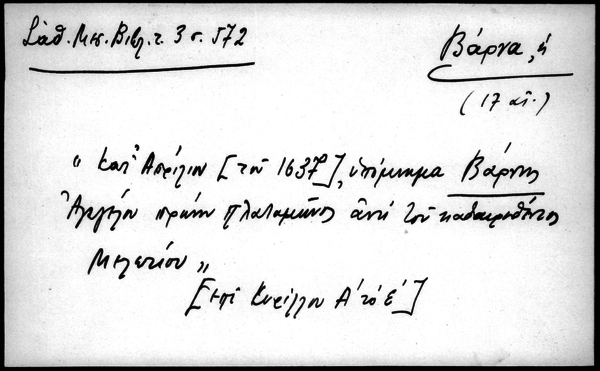 Σάθ. Μεσ. Βιβλ. τ. 3 σ. 572
Βάρνα, ἡ
(17 αἰ.)
"Κατ' Ἀπρίλιον [τοῦ 1637], ὑπόμνημα Βάρνης
Ἀγγέλου πρώην Πλαταμῶνος ἀντὶ τοῦ καθαιρεθέντος
Μελετίου"
[ἐπὶ Κυρίλλου Α' τὸ ε']